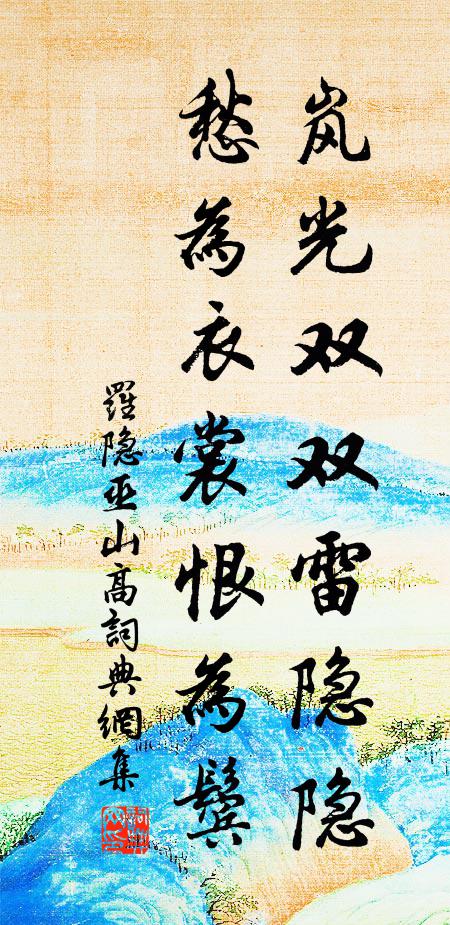 岚光双双雷隐隐
愁為衣裳恨為鬓
羅隐巫山高詞典網集